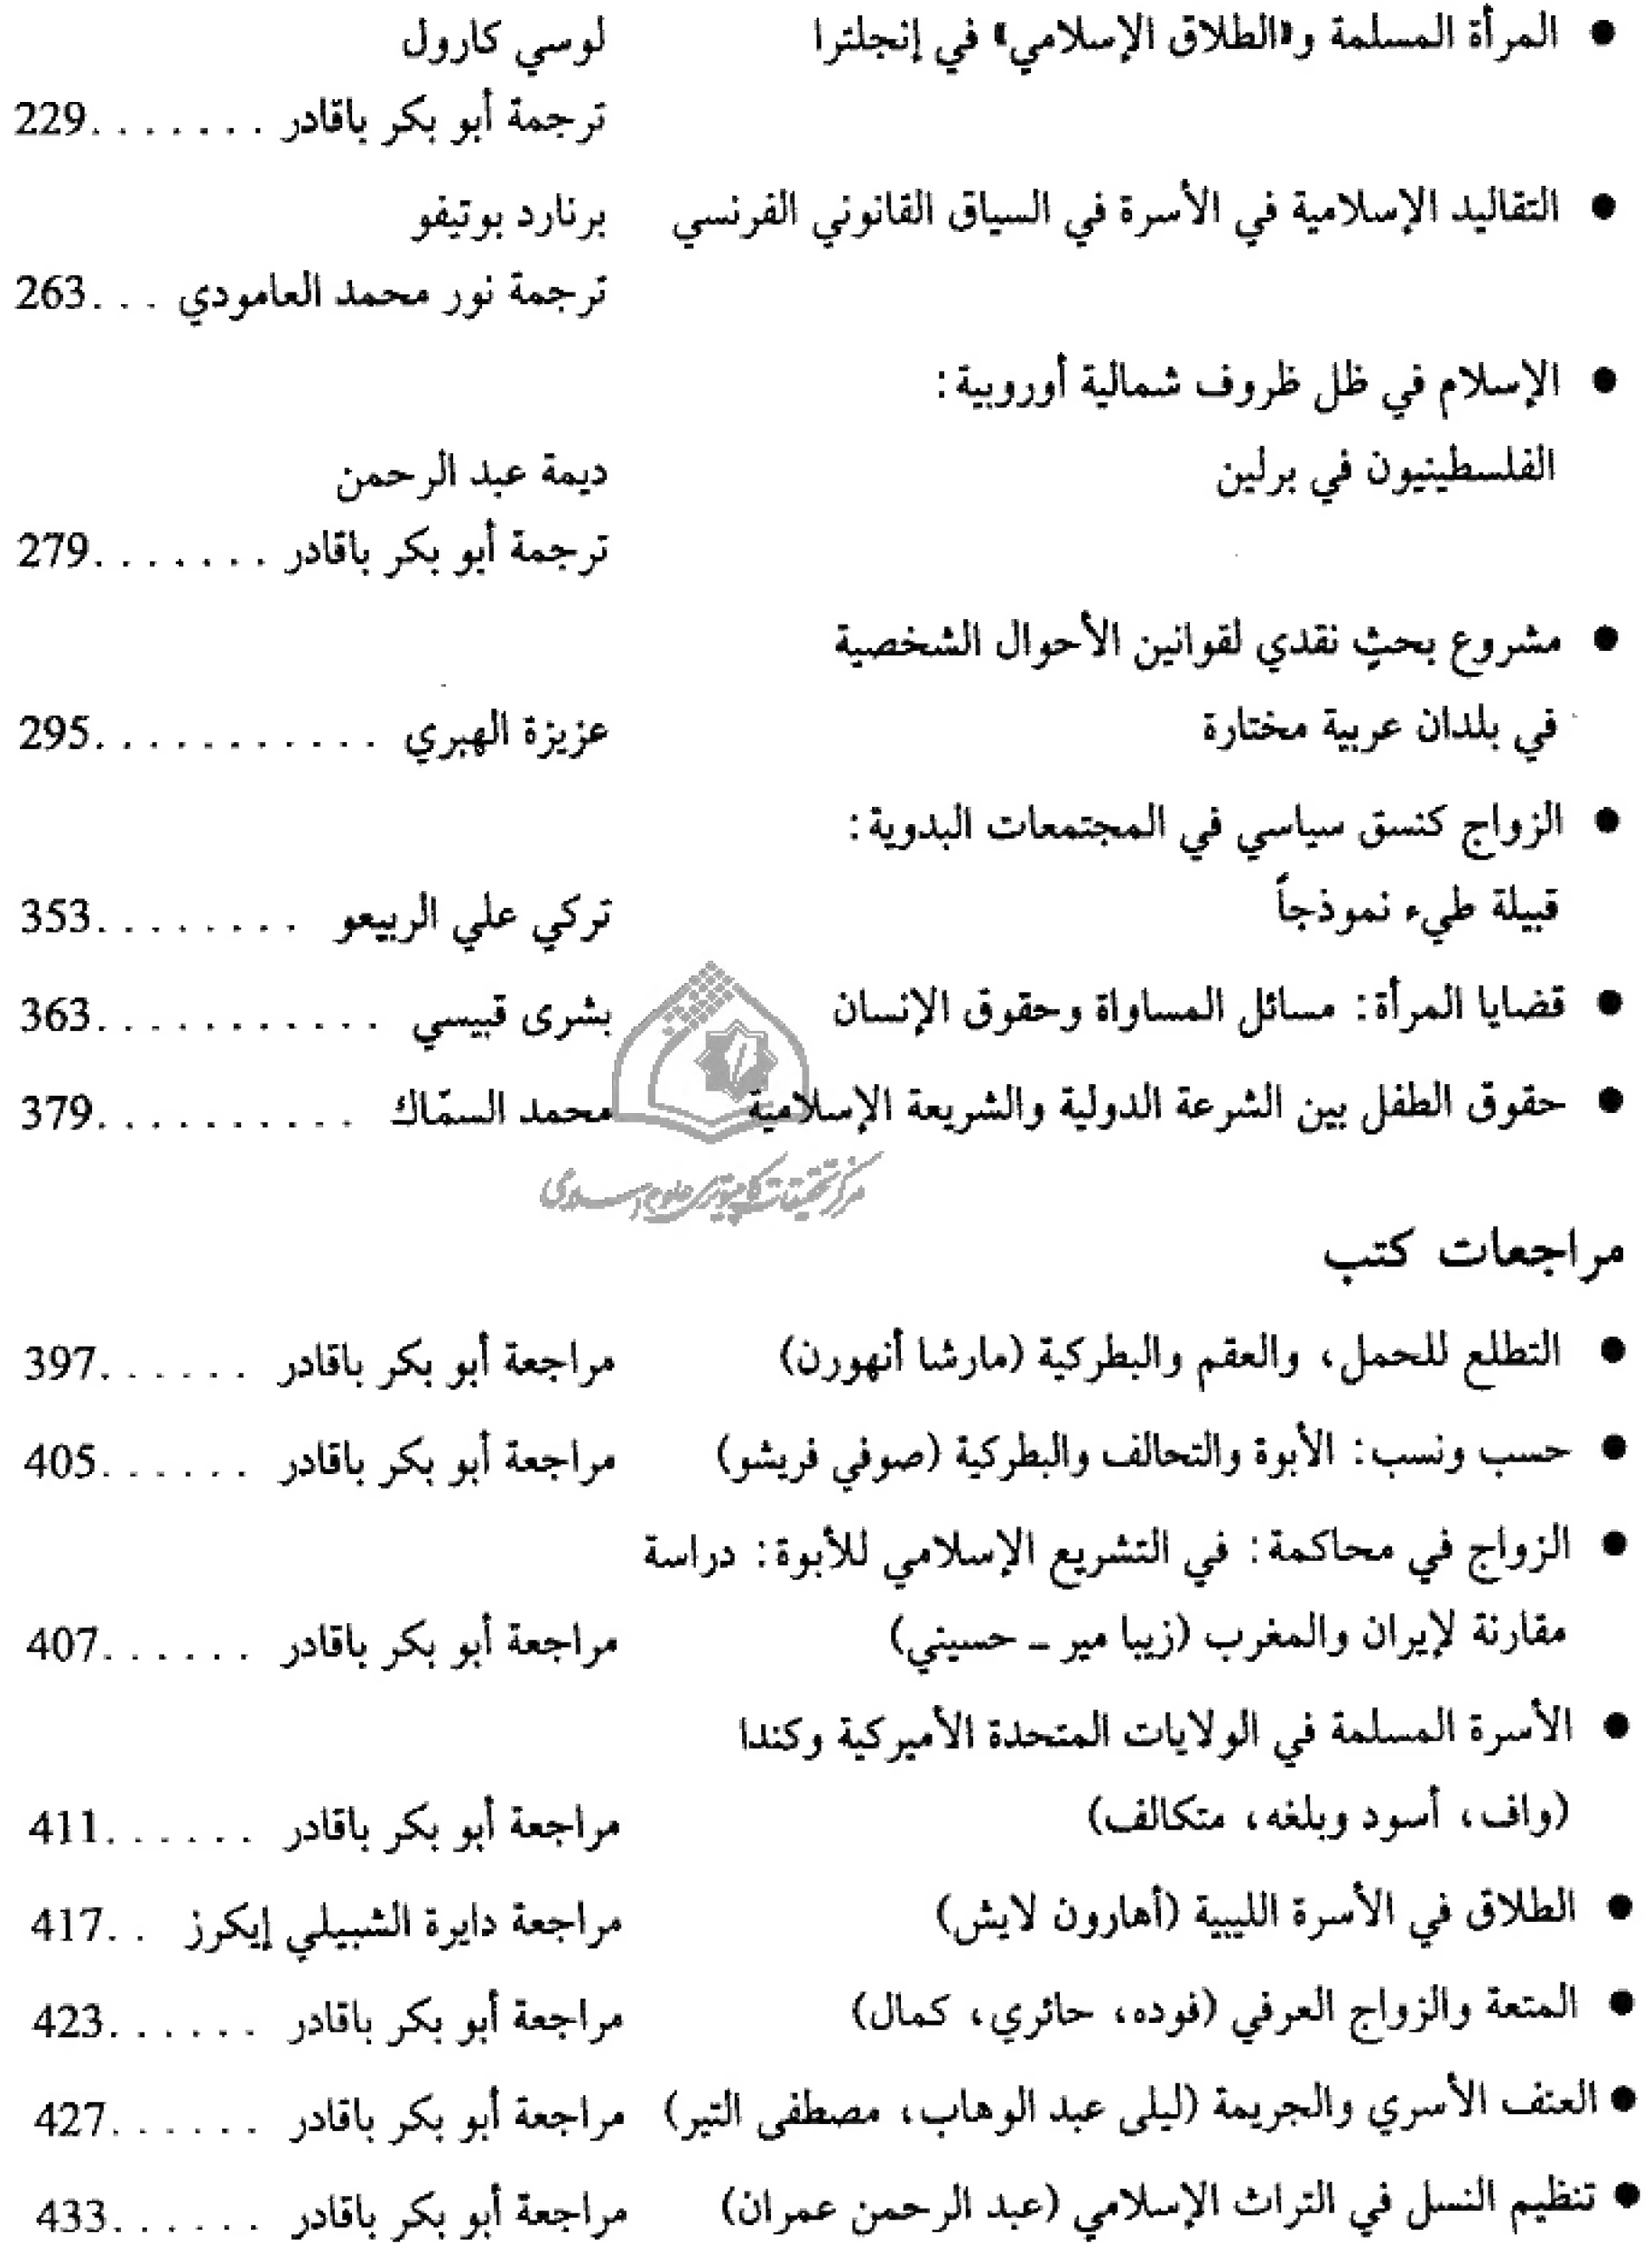 ● المرأة المسلمة و«الطلاق الإسلامي» في إنجلترا لوسي كارول
ترجمة أبو بكر باقادر . . . . . . . 229
● التقاليد الإسلامية في الأسرة في السياق القانوني الفرنسي برنارد بوتيفو
ترجمة نور محمد العامودي . . . 263
● الإسلام في ظل ظروف شمالية أوروبية:
الفلسطينيون في برلين ديمة عبد الرحمن
ترجمة أبو بكر باقادر . . . . . . . 279
● مشروع بحثٍ نقدي لقوانين الأحوال الشخصية
في بلدان عربية مختارة عزيزة الهبري . . . . . . . . . . . 295
● الزواج كنسق سياسي في المجتمعات البدوية:
قبيلة طيء نموذجاً تركي علي الربيعو . . . . . . . . 353
● قضايا المرأة: مسائل المساواة وحقوق الإنسان بشرى قبيسي . . . . . . . . . . . 363
● حقوق الطفل بين الشرعة الدولية والشريعة الإسلامية محمد السمّاك . . . . . . . . . . 379
مرکز تحقیقات کامپیوتری علوم اسلامی
مراجعات كتب
● التطلع للحمل، والعقم والبطركية (مارشا أنهورن) مراجعة أبو بكر باقادر . . . . . . 397
● حسب ونسب: الأبوة والتحالف والبطركية (صوفي فريشو) مراجعة أبو بكر باقادر . . . . . . 405
● الزواج في محاكمة: في التشريع الإسلامي للأبوة: دراسة
مقارنة لإيران والمغرب (زيبا مير ـ حسيني) مراجعة أبو بكر باقادر . . . . . . 407
● الأسرة المسلمة في الولايات المتحدة الأميركية وكندا
(واف، أسود وبلغه، متكالف) مراجعة أبو بكر باقادر . . . . . . 411
● الطلاق في الأسرة الليبية (أهارون لايش) مراجعة دايرة الشبيلي إيكرز . . 417
● المتعة والزواج العرفي (فوده، حائري، كمال) مراجعة أبو بكر باقادر . . . . . . 423
● العنف الأسري والجريمة (ليلى عبد الوهاب، مصطفى التير) مراجعة أبو بكر باقادر . . . . . . 427
● تنظيم النسل في التراث الإسلامي (عبد الرحمن عمران) مراجعة أبو بكر باقادر . . . . . . 433